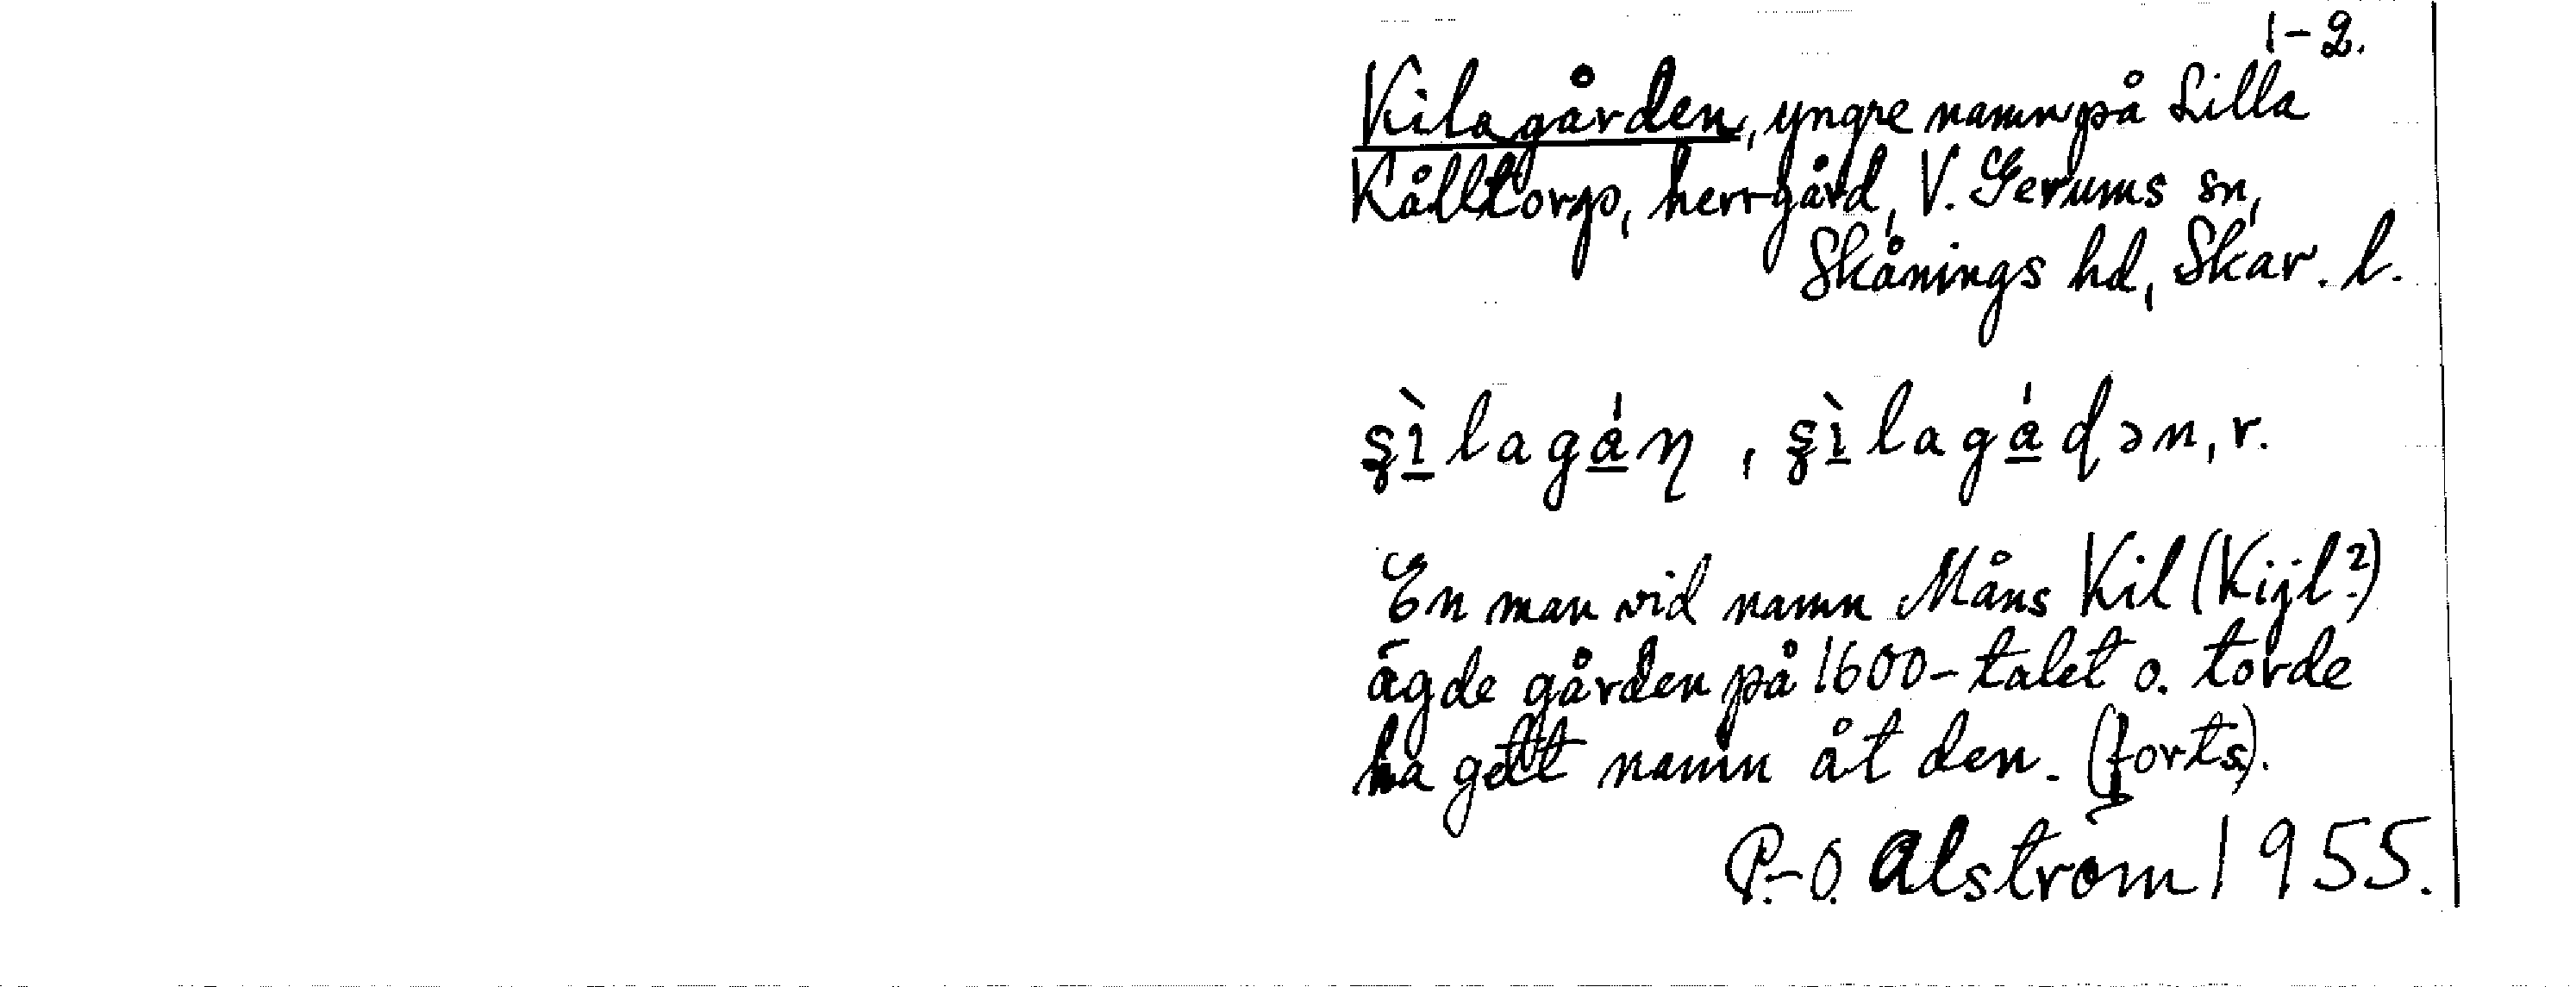 1-2.
Kilagården, yngre namn på Lilla
Kålltorp, herrgård, V. Gerums sn,
Skånings hd, Skar. l.
ʂì̱lagá̱ɳ, ʂì̱lagá̱ɖən, r.
En man vid namn Måns Kil (Kijl?)
ägde gården på 1600-talet o. torde
ha gett namn åt den. (forts).
P.-O. Alström 1955.